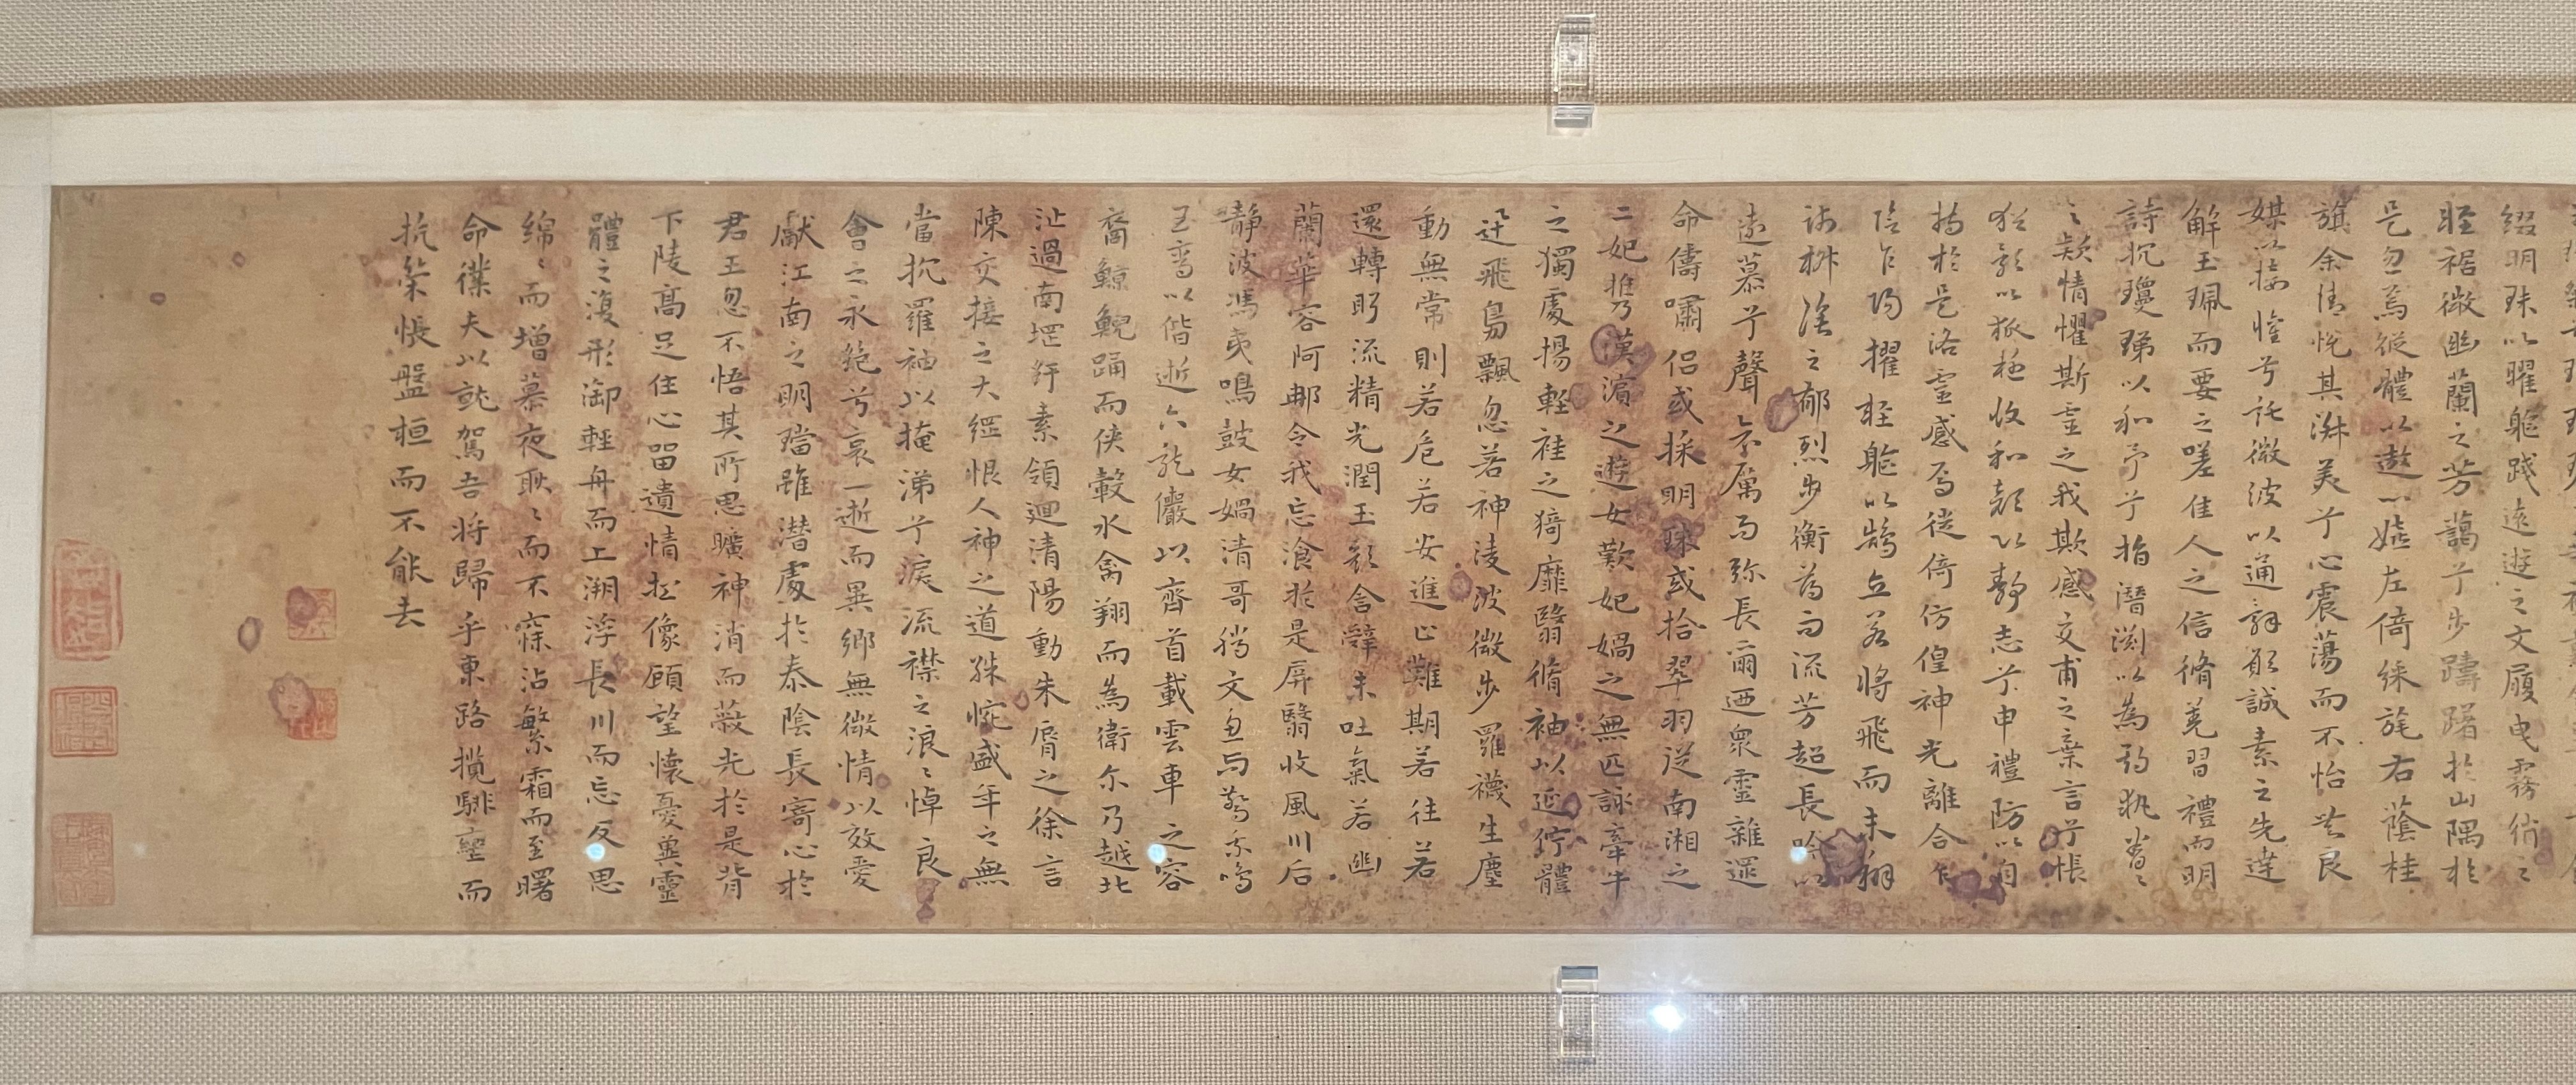 綴明珠以曜軀踐遠遊之文履曳霧綃之
輕裾微幽蘭之芳藹兮步躊躇於山隅於
是忽焉縱體以遨以嬉左倚綵旄右蔭桂
旗余情悅其淑美兮心震蕩而不怡無良
媒以接懽兮託微波以通辭願誠素之先達
解玉珮而要之嗟佳人之信脩羌習禮而明
詩抗瓊珶以和予兮指潛淵以為期執眷〻
之款情懼斯靈之我欺感交甫之棄言兮悵
猶豫以狐疑收和顏以靜志兮申禮防以自
持於是洛靈感焉徙倚彷徨神光離合乍
陰乍陽擢輕軀以鶴立若將飛而未翔
踐椒塗之郁烈步衡薄而流芳超長吟以
遠慕兮聲哀厲而弥長爾迺眾靈雜遝
命儔嘯侶或採明珠或拾翠羽從南湘之
二妃攜漢濱之遊女歎妃媧之無匹詠牽牛
之獨處揚輕袿之猗靡翳脩袖以延佇體
迅飛鳧飄忽若神淩波微步羅襪生塵
動無常則若危若安進止難期若往若
還轉眄流精光潤玉顏含辭未吐氣若幽
蘭華容阿那令我忘飡於是屏翳收風川后
靜波馮夷鳴鼓女媧清哥騰文魚而警乘鳴
玉鸞以偕逝六龍儼以齊首載雲車之容
裔鯨鯢踊而俠轂水禽翔而為衛尓乃越北
沚過南岡紆素領迴清陽動朱脣之徐言
陳交接之大綱恨人神之道殊怨盛年之無
當抗羅袖以掩涕兮淚流襟之浪〻悼良
會之永絕兮哀一逝而異鄉無微情以效愛
獻江南之明璫雖潛處於泰陰長寄心於
君王忽不悟其所思曠神消而蔽光於是背
下陵高足住心留遺情想像顧望懷憂兾靈
體之復形御輕舟而上溯浮長川而忘反思
綿〻而增慕夜耿〻而不寐沾繁霜而至曙
命僕夫以就駕吾將歸乎東路攬騑轡而
抗策悵盤桓而不能去